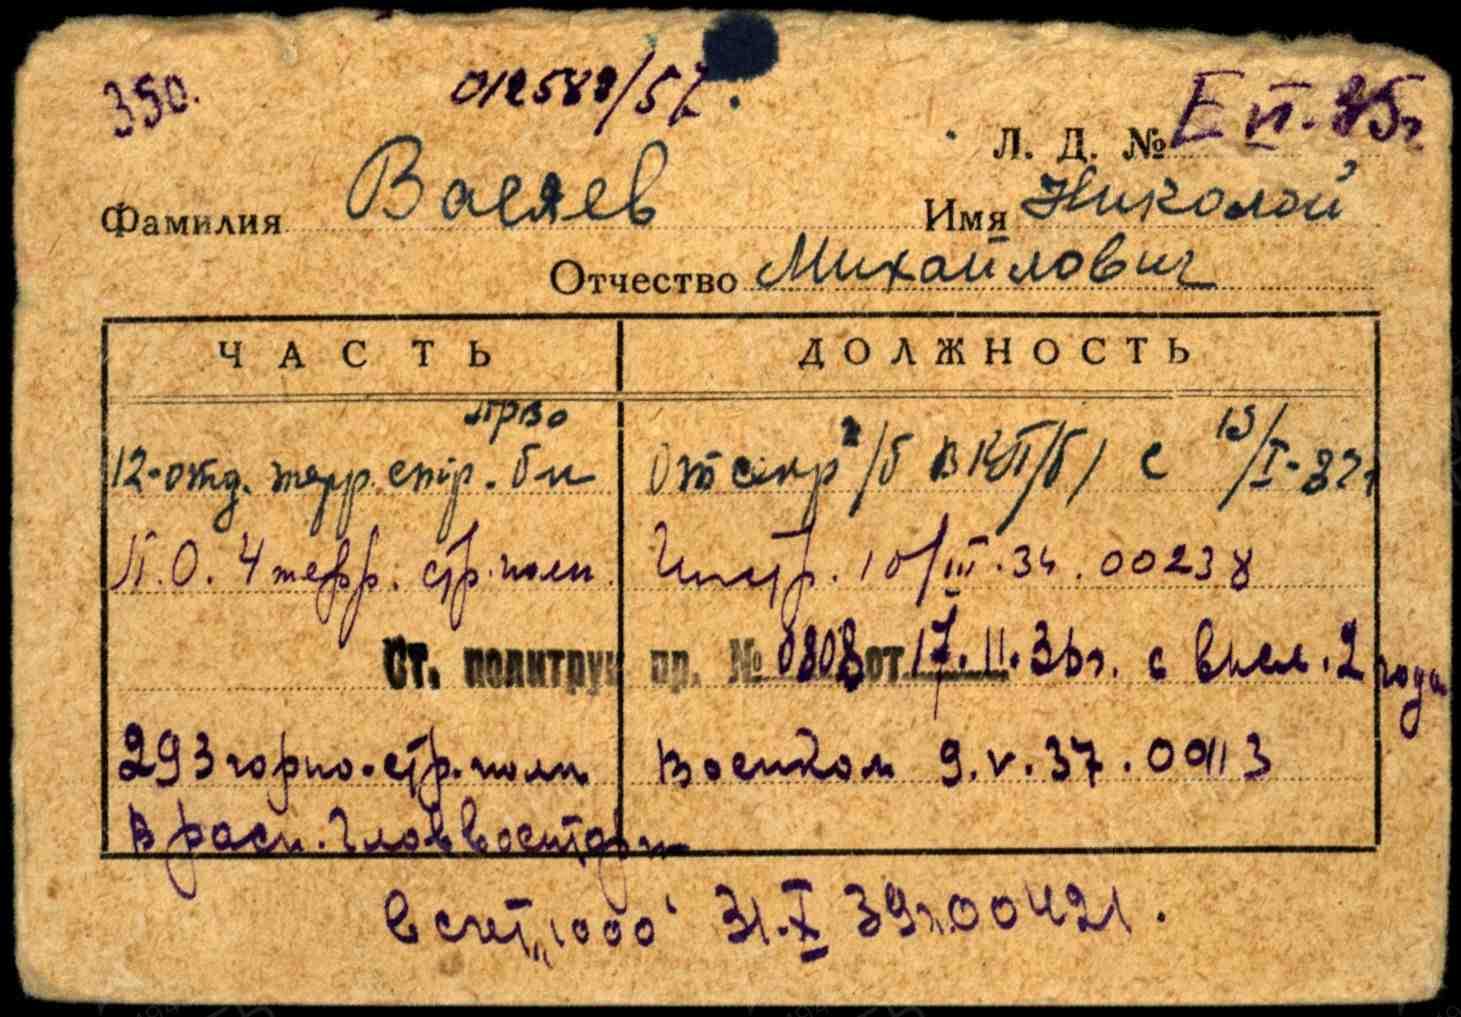 350. 012589/57.
Л. Д. № E VI. 35г
Фамилия Васяев Имя Николой
Отчество Михайлович
ЧАСТЬ ДОЛЖНОСТЬ
прво
12-отд. терр. стр. бн Отсекр /б ВКП/б/ с 13/I-32г
П.О. 4 терр. стр. полк. Инстр. 10/III.34. 00238
Ст. политрук пр. № 0808 от 17.II.36г. с высл. 2 года
293 горно-стр. полк Военком 9.V.37.00113
В расп. Главвоенторг
в счет „1000" 31.X 39г. 00421.